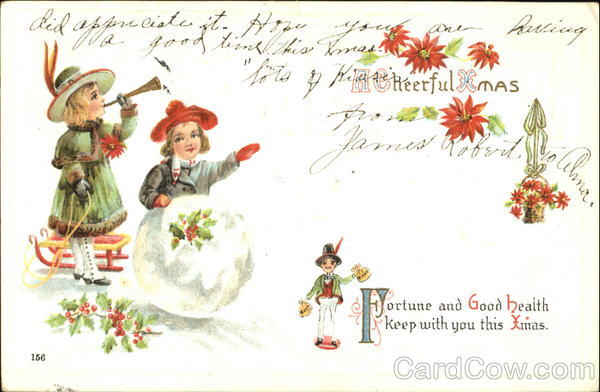 did appreciate it. Hope you are having
a good time this Xmas.
"Lots of Kisses"
A Cheerful Xmas
from
James Robert to Alma.
Fortune and Good Health
keep with you this Xmas.
156
CardCow.com